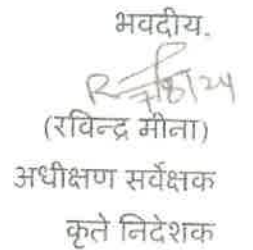 भवदीय.
7/8/24
(रविन्द्र मीना)
अधीक्षण सर्वेक्षक
कृते निदेशक